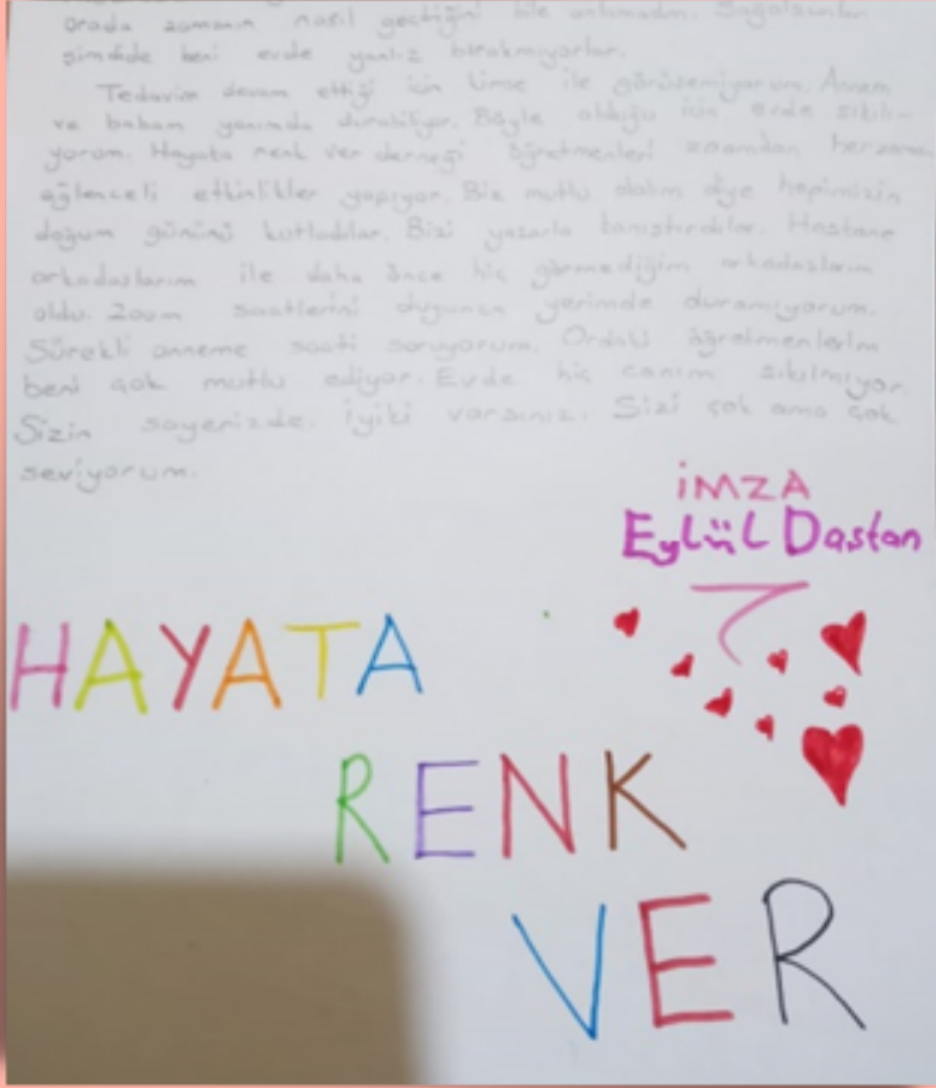 orada zamanın nasıl geçtiğini bile anlamadım. Sağolsunlar
şimdide beni evde yanlız bırakmıyorlar.
Tedavim devam ettiği için kimse ile görüşemiyorum. Annem
ve babam yanımda durabiliyor. Böyle olduğu için evde sıkılı-
yorum. Hayata renk ver derneği öğretmenleri zoomdan
eğlenceli etkinlikler yapıyor. Biz mutlu olalım diye hepimizin
doğum gününü kutladılar. Bizi yazarla tanıştırdılar. Hastane
arkadaşlarım ile daha önce hiç görmediğim arkadaşlarım
oldu. Zoom saatlerini duyunca yerimde duramıyorum.
Sürekli anneme saati soruyorum. Ordaki öğretmenlerim
beni çok mutlu ediyor. Evde hiç canım sıkılmıyor
Sizin sayenizde. iyiki varsınız. Sizi çok ama çok
seviyorum.
İMZA
Eylül Dastan
HAYATA
RENK
VER